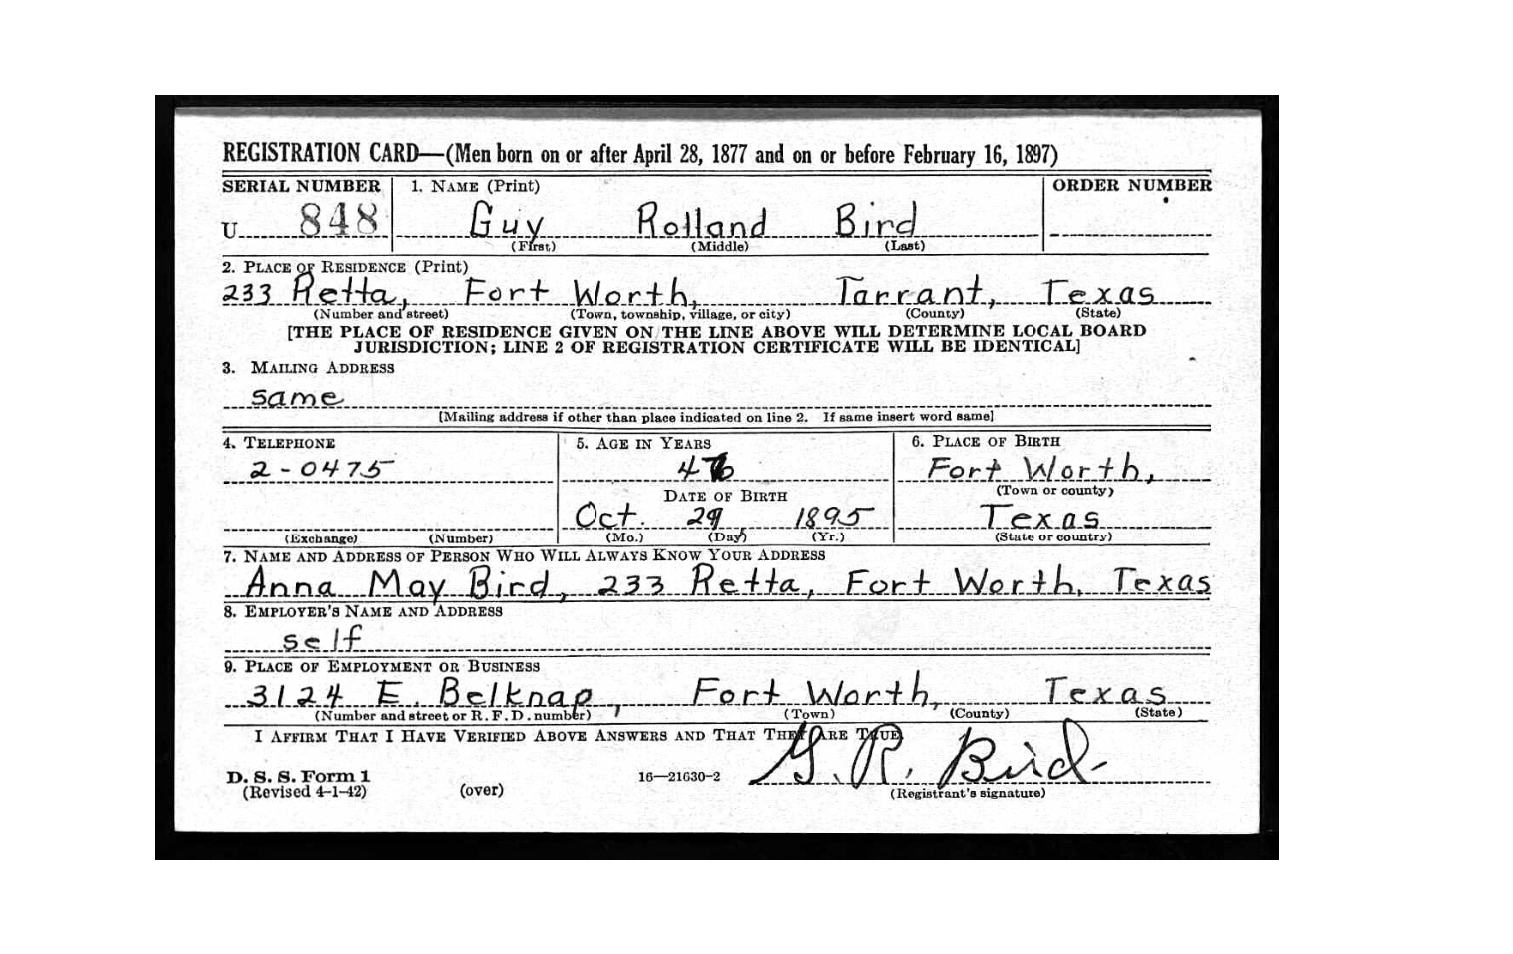 REGISTRATION CARD—(Men born on or after April 28, 1877 and on or before February 16, 1897)
SERIAL NUMBER 1. NAME (Print) ORDER NUMBER
U 848 Guy Rolland Bird
(First) (Middle) (Last)
2. PLACE OF RESIDENCE (Print)
233 Retta, Fort Worth, Tarrant, Texas
(Number and street) (Town, township, village, or city) (County) (State)
[THE PLACE OF RESIDENCE GIVEN ON THE LINE ABOVE WILL DETERMINE LOCAL BOARD
JURISDICTION; LINE 2 OF REGISTRATION CERTIFICATE WILL BE IDENTICAL]
3. MAILING ADDRESS
same
[Mailing address if other than place indicated on line 2. If same insert word same]
4. TELEPHONE 5. AGE IN YEARS 6. PLACE OF BIRTH
2-0475 46 Fort Worth,
(Town or county)
DATE OF BIRTH
Oct. 29, 1895 Texas
(Exchange) (Number) (Mo.) (Day) (Yr.) (State or country)
7. NAME AND ADDRESS OF PERSON WHO WILL ALWAYS KNOW YOUR ADDRESS
Anna May Bird, 233 Retta, Fort Worth, Texas
8. EMPLOYER'S NAME AND ADDRESS
self
9. PLACE OF EMPLOYMENT OR BUSINESS
3124 E. Belknap, Fort Worth, Texas
(Number and street or R. F. D. number) (Town) (County) (State)
I AFFIRM THAT I HAVE VERIFIED ABOVE ANSWERS AND THAT THEY ARE TRUE.
G. R. Bird
D. S. S. Form 1 16—21630-2
(Revised 4-1-42) (over) (Registrant's signature)